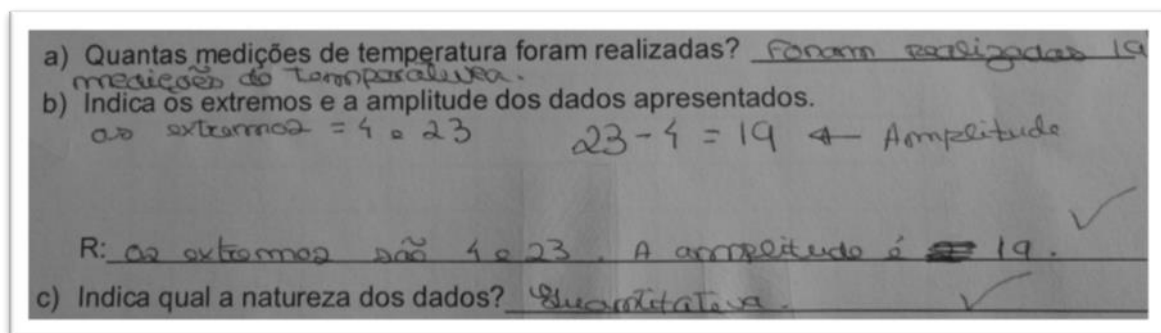 a) Quantas medições de temperatura foram realizadas? Foram realizadas 19
medições de temperatura.
b) Indica os extremos e a amplitude dos dados apresentados.
os extremos = 4 e 23 23 - 4 = 19 ← Amplitude
R: Os extremos são 4 e 23. A amplitude é 19.
c) Indica qual a natureza dos dados? Quantitativa.